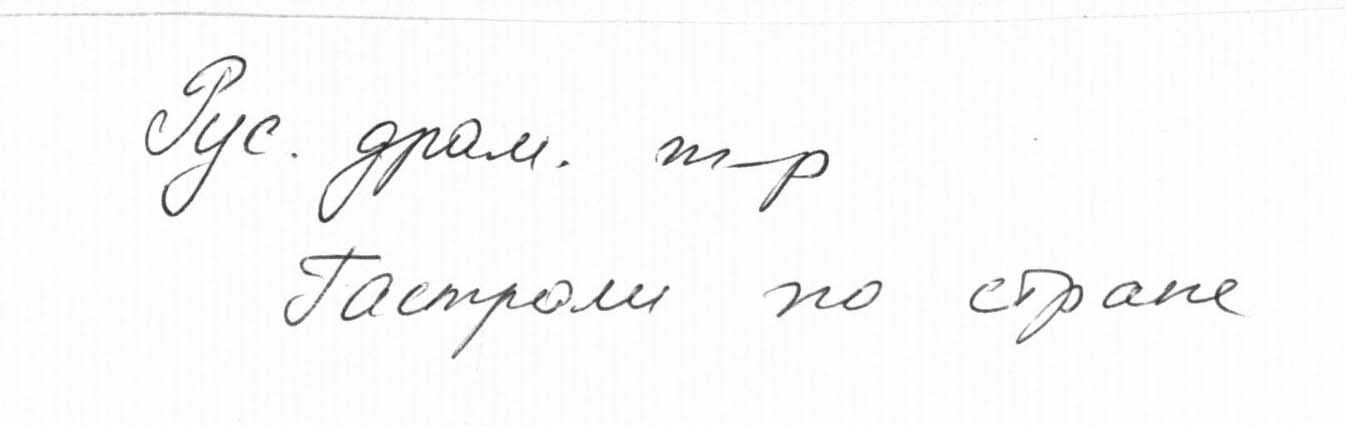 Рус. драм. т-р
Гастроли по стране